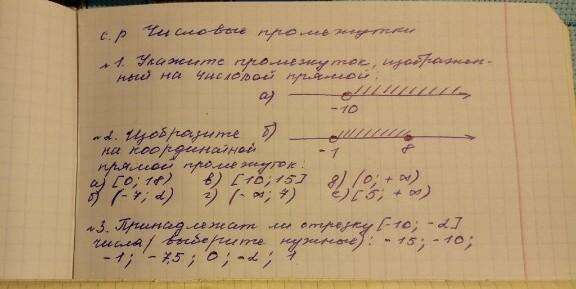 с.р Числовые промежутки
№1. Укажите промежуток, изображен-
ный на числовой прямой:
а)
-10
№2. Изобразите б)
на координатной -1 8
прямой промежуток:
а) [0; 18) в) [10; 15] д) (0; +∞)
б) (-7; 2) г) (-∞; 7) е) [5; +∞)
№3. Принадлежат ли отрезку [-10; -2]
числа (выберите нужные): -15; -10;
-1; -7,5; 0; -2; 1